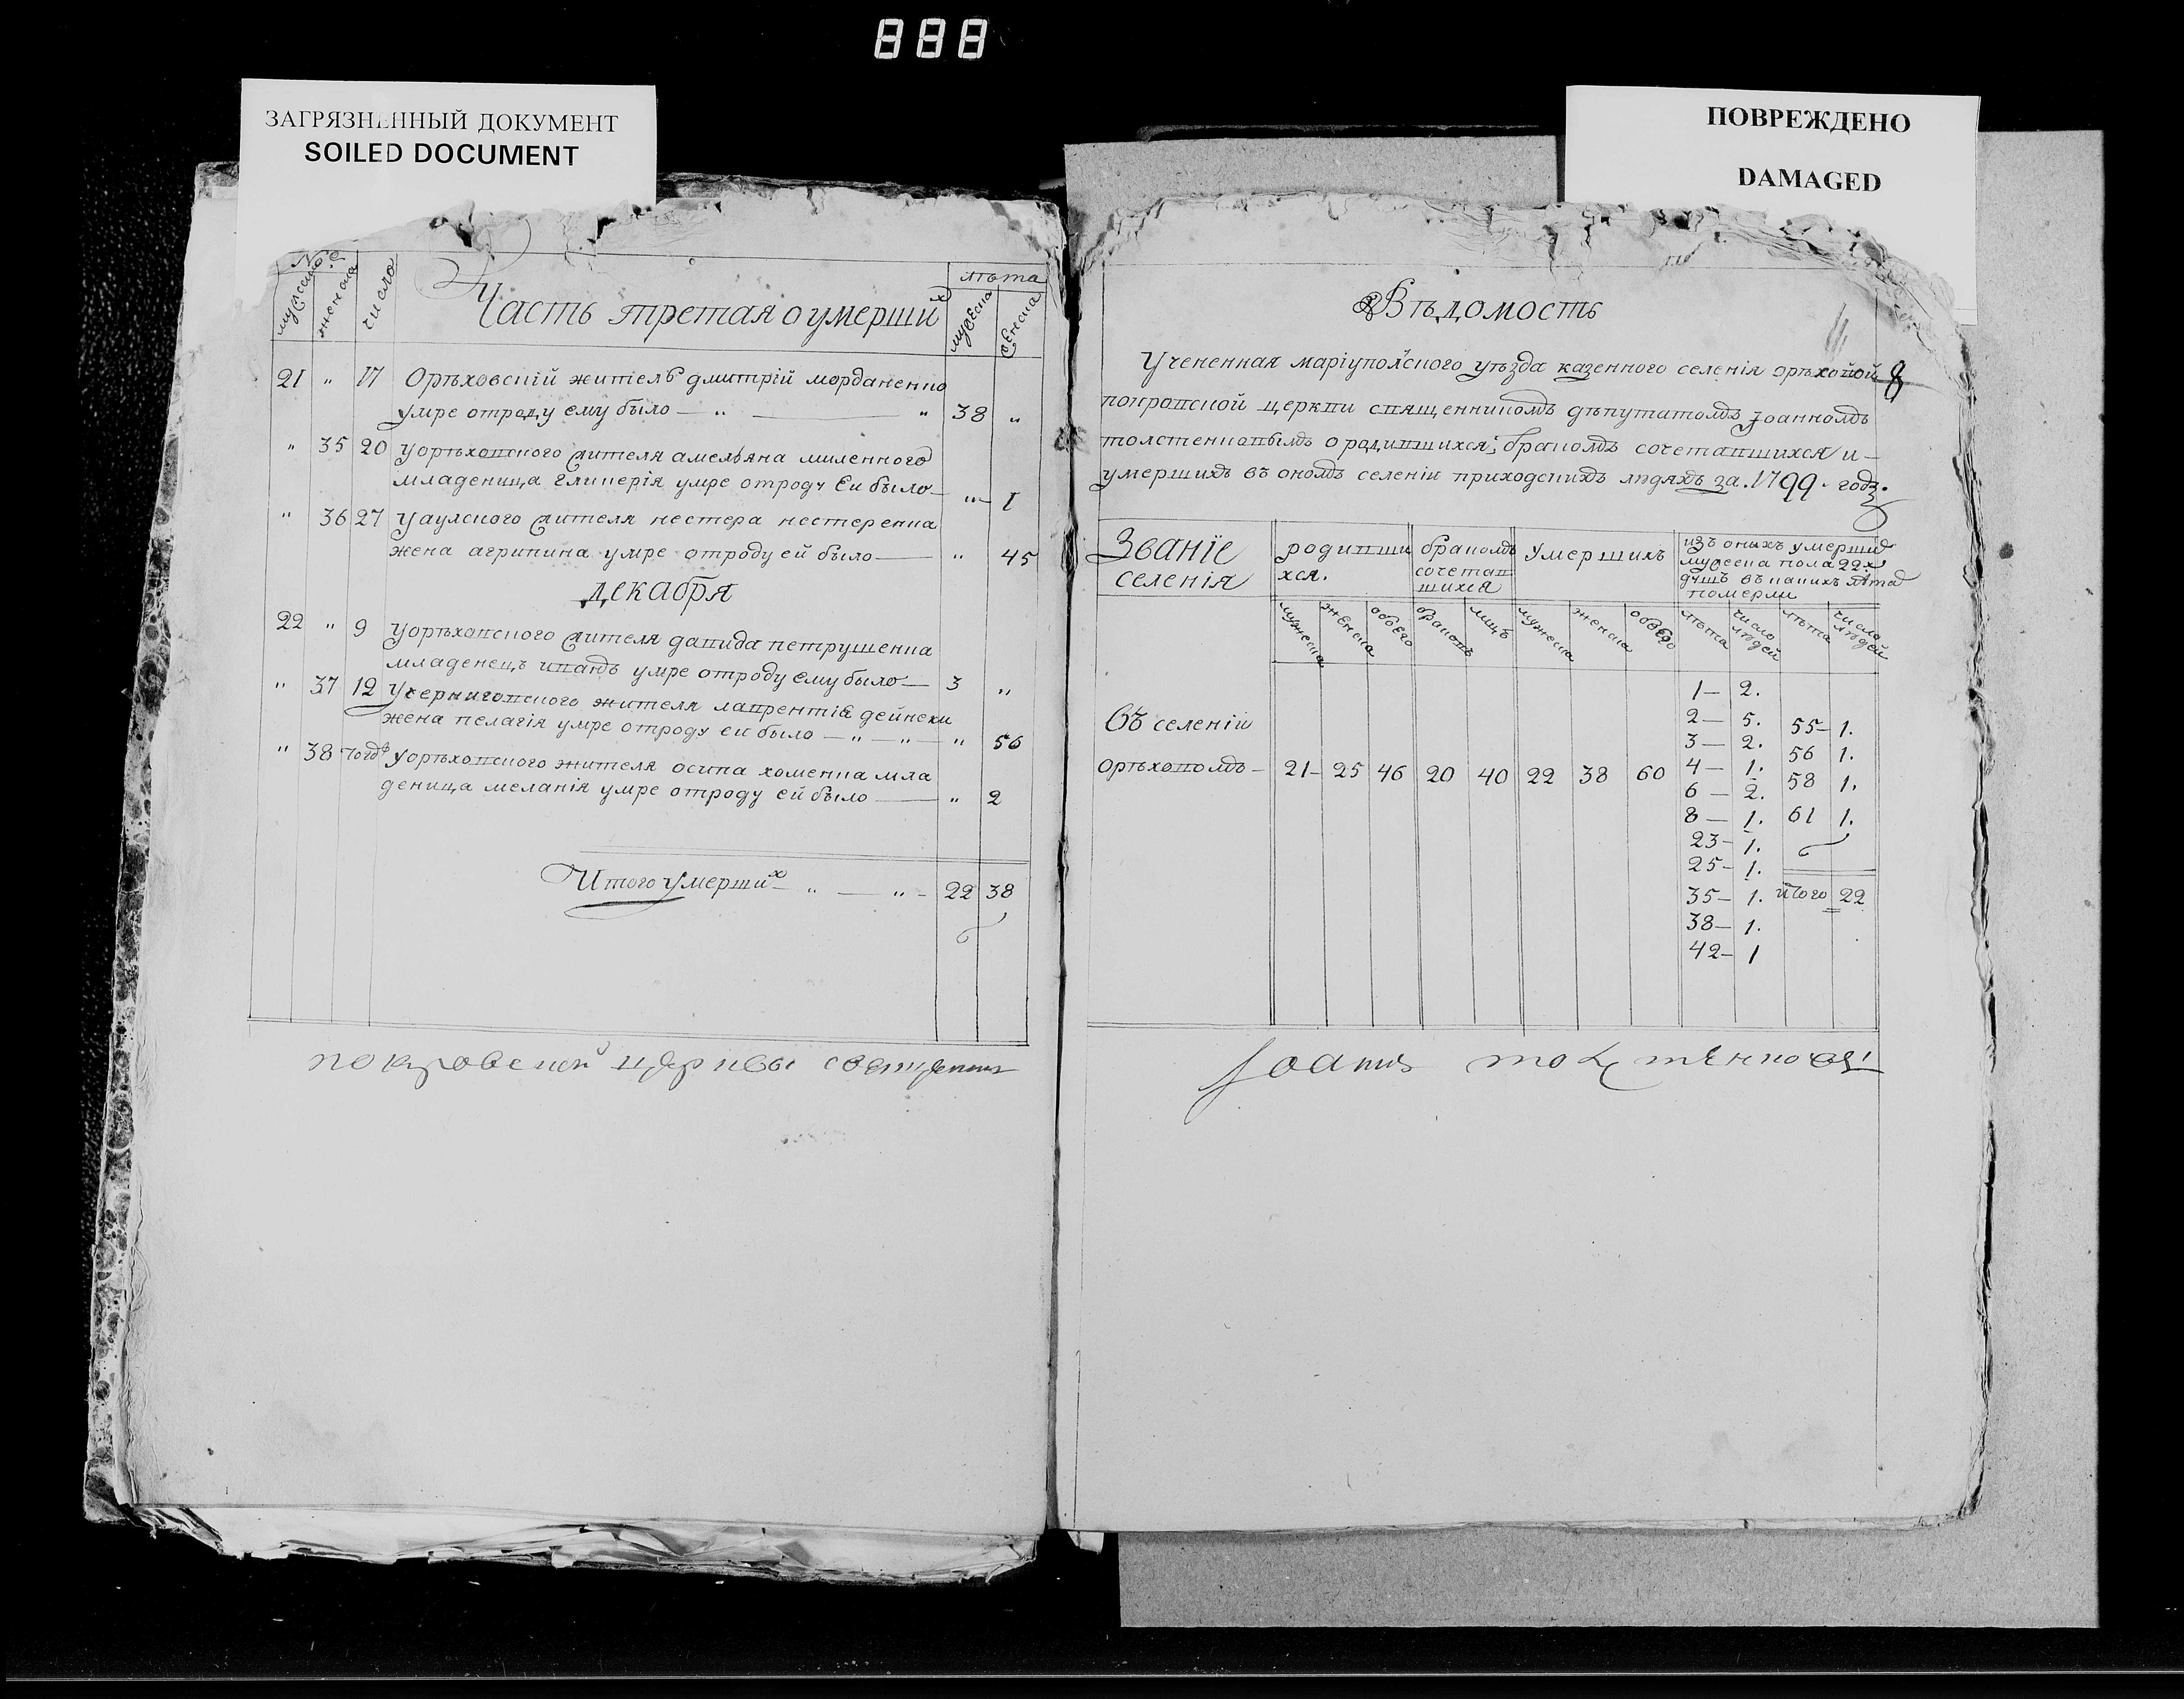 888
ЗАГРЯЗНЕННЫЙ ДОКУМЕНТ
SOILED DOCUMENT
ПОВРЕЖДЕНО
DAMAGED
число
Часть третая о умерших
лѣта
мужеска
женска
21 " 17 Орѣховскій житель дмитрій морданенко
умре отроду ему было — " — " 38 "
" 35 20 У орѣховского жителя амельяна миленного
младеница гликерія умре отроду ей было — " — 1
" 36 27 У аулского жителя нестера нестеренка
жена агрипина умре отроду ей было — " 45
декабря
22 " 9 У орѣховского жителя давида петрушенка
младенецъ иваюъ умре отроду ему было — 3 "
" 37 12 У черниговского жителя лаврентія дейнеки
жена пелагія умре отроду ей было — " — " — " 56
" 38 тогдъ У орѣховского жителя осипа хоменка мла
деница меланія умре отроду ей было — " 2
Итого умерших — " — " - 22 38
покровской церквы священик
Вѣдомость
8
Учененная маріуполского уѣзда казенного селенія орѣховой
покровской церкви священникомъ дѣпутатомъ Іоанномъ
толстенковымъ о родившихся, бракомъ сочетавшихся и -
умершихъ въ ономъ селеніи приходскихъ людяхъ за . 1799 . годъ.
Званіе селенія
родивши хся.
бракомъ сочетав шихся
Умершихъ
изъ оныхъ умерших
мужеска пола 22х
душъ въ какихъ лѣтах
померли
мужеска женска обоего браковъ лицъ мужеска женска обоего лѣта число людей лѣта число людей
Въ селеніи
орѣховомъ — 21 - 25 46 20 40 22 38 60
1 — 2.
2 — 5. 55 - 1.
3 — 2. 56 1.
4 — 1. 58 1.
6 — 2. 61 1.
8 — 1.
23 - 1.
25 - 1.
35 - 1. итого 22
38 — 1.
42 - 1
Іоанъ толстенковъ